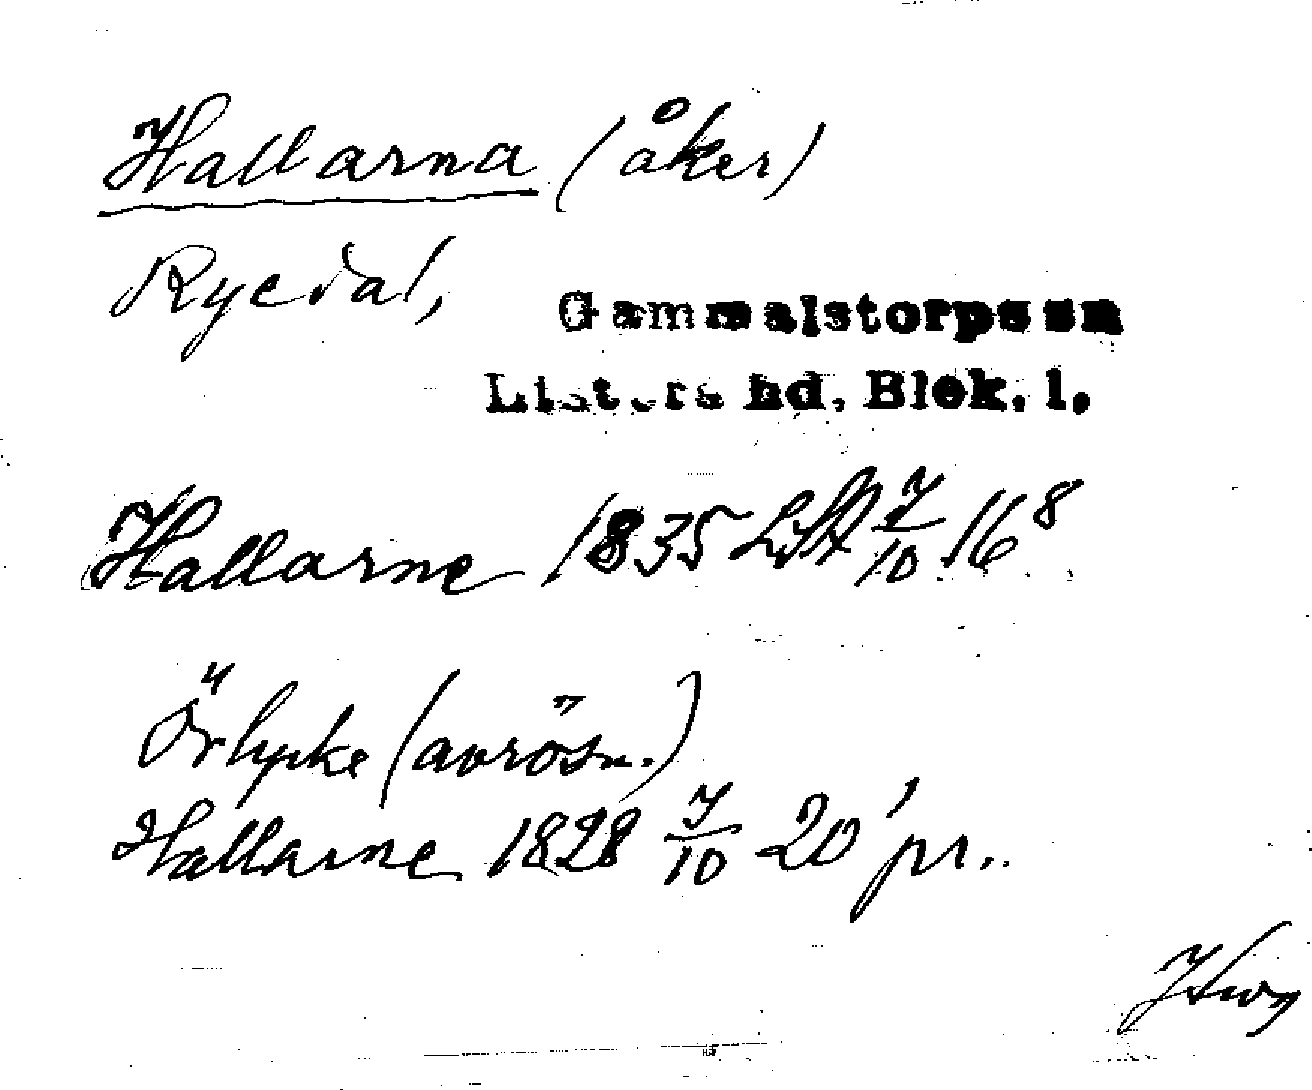 Hallarna (åker)
Ryedal,
Gammalstorps sn
Listers hd, Blek. l.
Hallarne 1835 LSA 7/10 16⁸
Örlycke (avrösn.)
Hallarne 1828 7/10 20 pr.